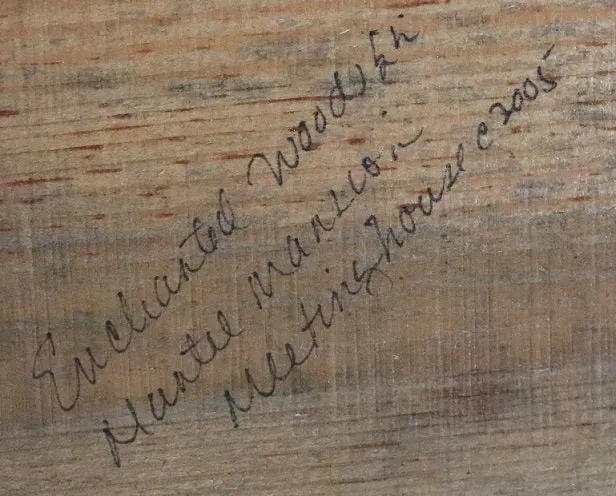 Enchanted Woods
Mantel Mansion
Meetinghouse c 2005